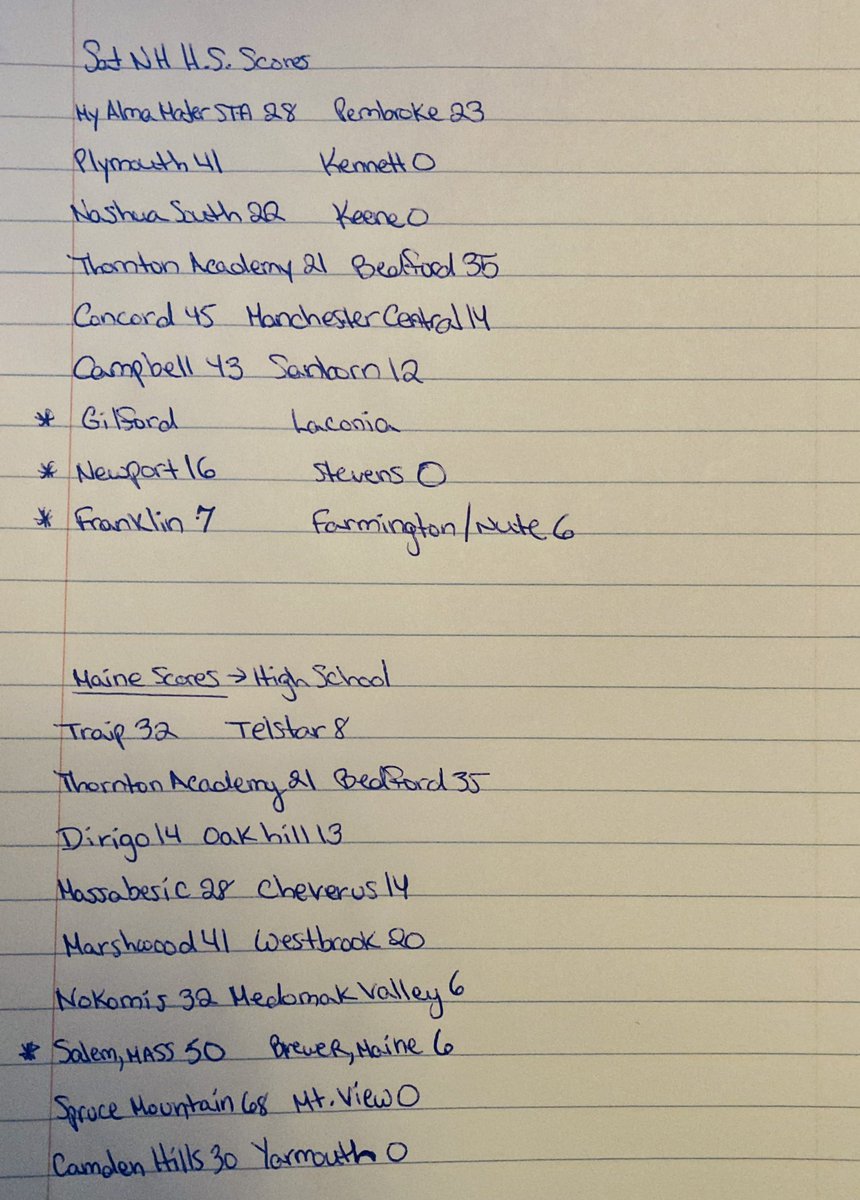 Sat NH H.S. Scores
My Alma Mater STA 28 Pembroke 23
Plymouth 41 Kennett 0
Nashua South 22 Keene 0
Thornton Academy 21 Bedford 35
Concord 45 Manchester Central 14
Campbell 43 Sanborn 12
* Gilford Laconia
* Newport 16 Stevens 0
* Franklin 7 Farmington/Nute 6
Maine Scores → High School
Traip 32 Telstar 8
Thornton Academy 21 Bedford 35
Dirigo 14 Oak hill 13
Massabesic 28 Cheverus 14
Marshwood 41 Westbrook 20
Nokomis 32 Medomak Valley 6
* Salem, MASS 50 Brewer, Maine 6
Spruce Mountain 68 Mt. View 0
Camden Hills 30 Yarmouth 0